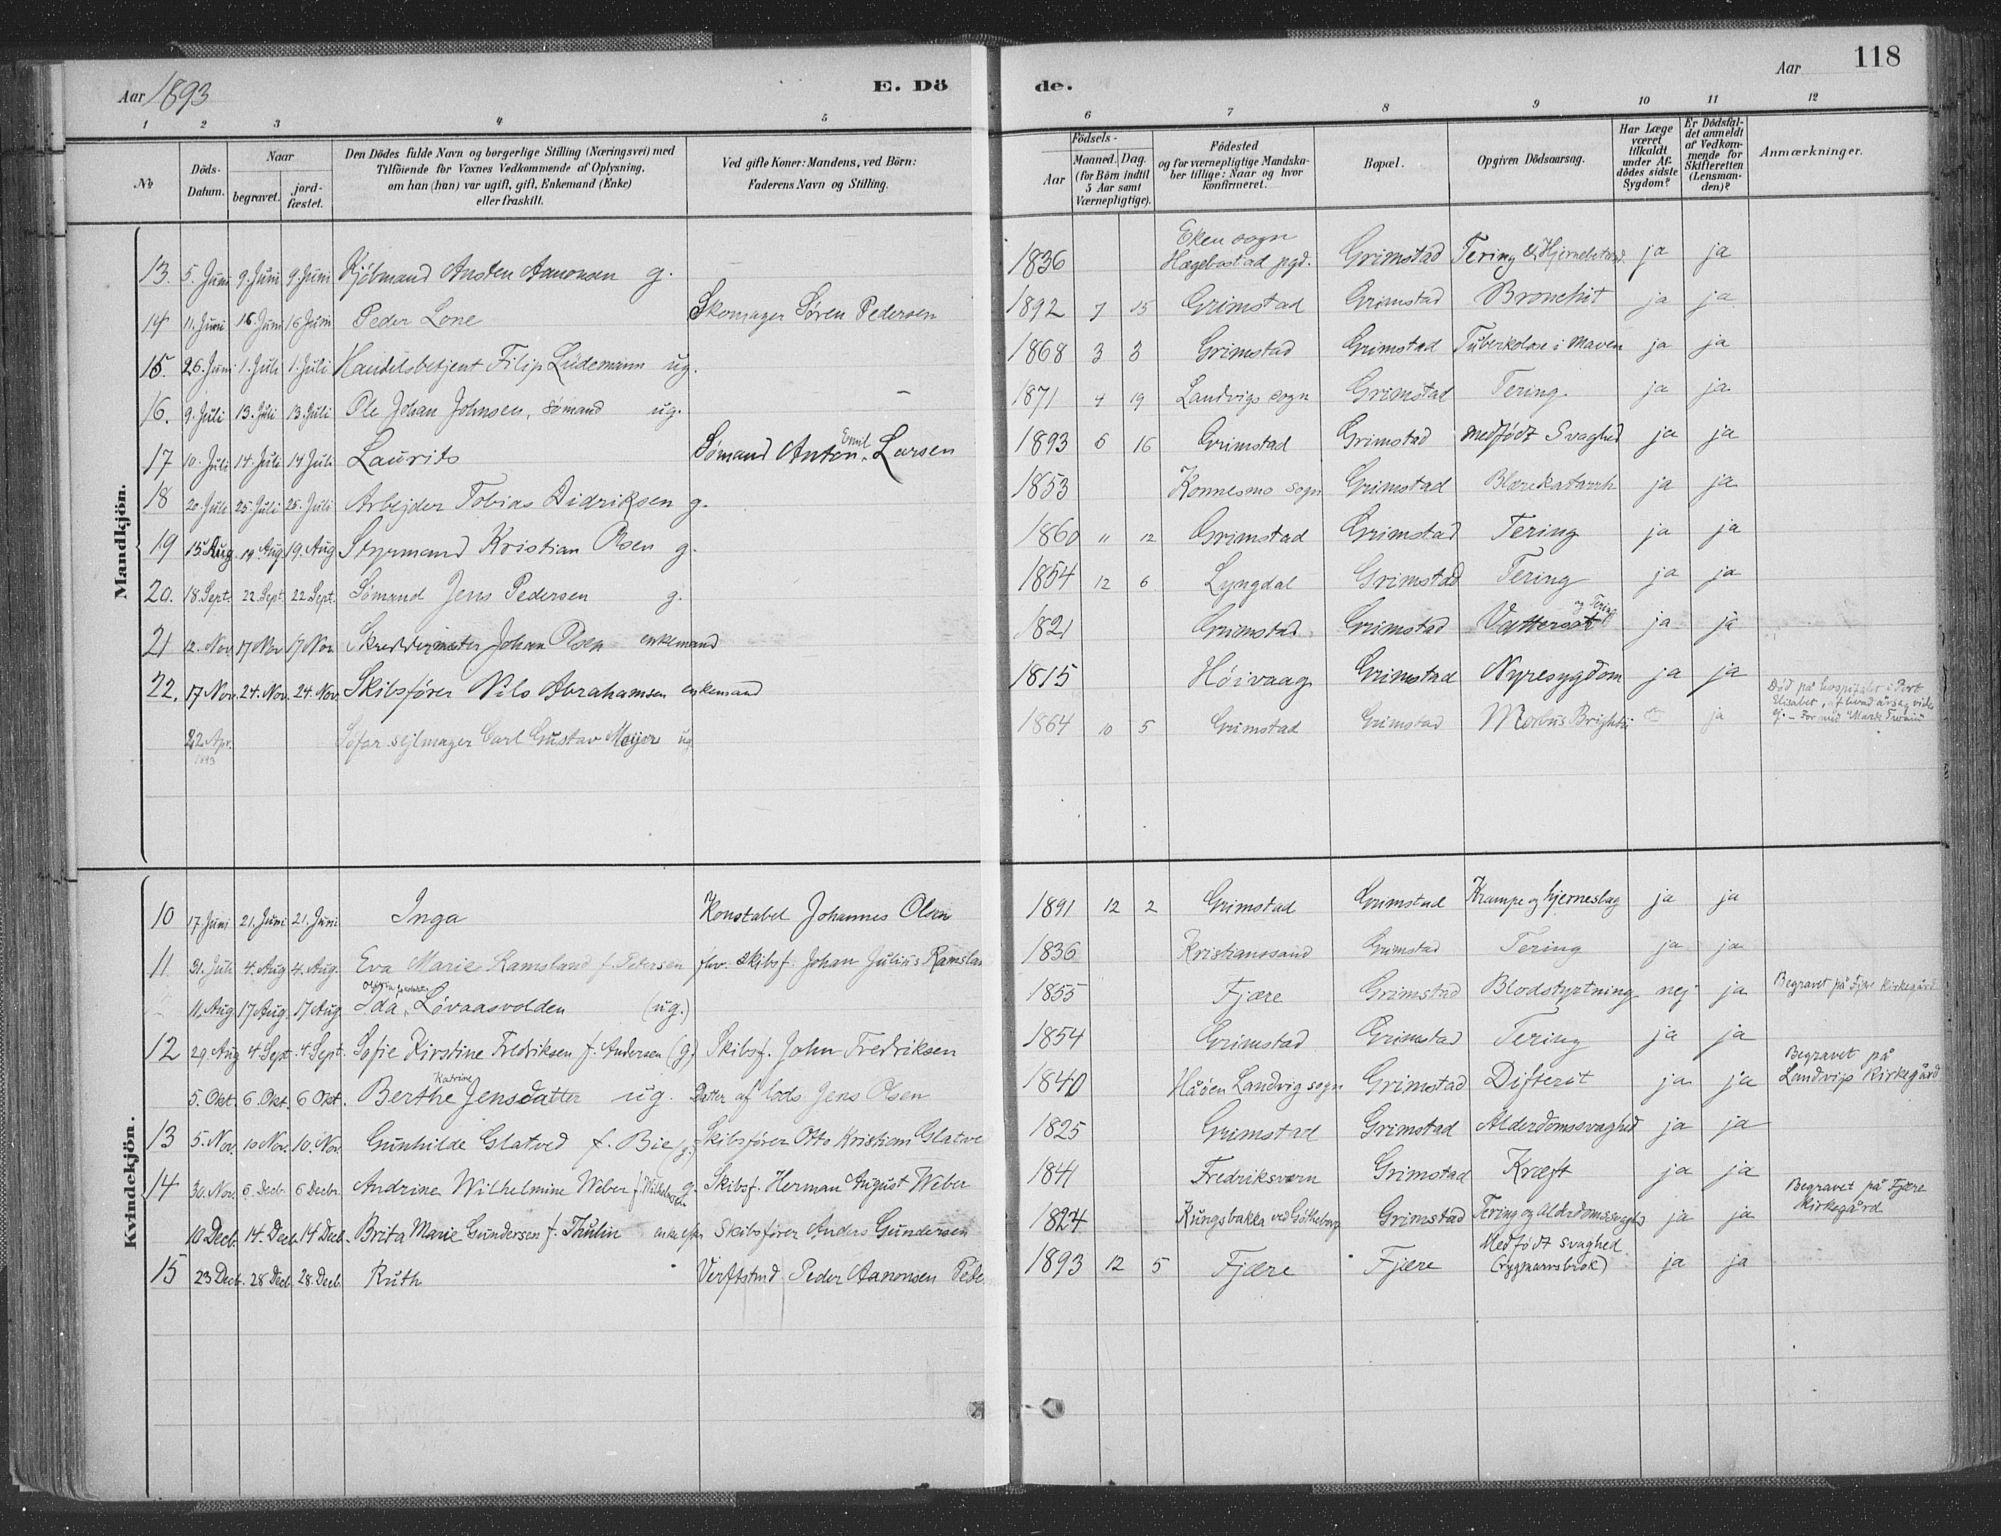 Aar 1893 E. Dö de. Aar 118
1 2 3 4 5 6 7 8 9 10 11 12
No
Döds-
Datum.
Naar
begravet.
jord-
fæstet.
Den Dödes fulde Navn og borgerlige Stilling (Næringsvei) med
Tilföiende for Voxnes Vedkommende af Oplysning,
om han (hun) var ugift, gift, Enkemand (Enke)
eller fraskilt.
Ved gifte Koner: Mandens, ved Börn:
Faderens Navn og Stilling.
Födsels-
Aar
Maaned. Dag.
(for Börn indtil
5 Aar samt
Værnepligtige).
Födested
og for værnepligtige Mandska-
ber tillige: Naar og hvor
konfirmeret.
Bopæl.
Opgiven Dödsaarsag.
Har Læge
været
tilkaldt
under Af-
dödes sidste
Sygdom?
Er Dödsfal-
det anmeldt
af Vedkom-
mende for
Skifteretten
(Lensman-
den)?
Anmærkninger.
Mandkjön.
13. 5. Juni 9. Juni 9. Juni Kjøbmand Ansten Aanonsen g. 1836 Eken sogn Hægebostad pgd. Grimstad Tering ja ja
14 11. Juni 16. Juni 16 Juni Peder Lone Skomager Søren Pedersen 1892 7 15 Grimstad Grimstad Bronchit ja ja
15. 26. Juni 1. Juli 1. Juli Handelsbetjent Filip Lüdemann ug. 1868 3 3 Grimstad Grimstad Tuberkelose i Maven ja ja
16. 9. Juli 13. Juli 13. Juli Ole Johan Johnsen, sømand ug. – 1871 4 19 Landvigs sogn Grimstad Tering ja ja
17 10. Juli 14. Juli 14 Juli Laurits Sømand Anton Emil Larsen 1893 6 16 Grimstad Grimstad Medfødt Svaghed ja ja
18 20. Juli 25. Juli 25. Juli Arbejder Tobias Didriksen g. 1853 Konnesmo sogn Grimstad Blærekatarrh ja ja
19 15 Aug. 19. Aug. 19. Aug Styrmand Kristian Olsen g. 1860 11 12 Grimstad Grimstad Tering ja ja
20. 18. Sept. 22. Sept. 22. Sept. Sømand Jens Pedersen g. 1854 12 6 Lyngdal Grimstad Tering ja ja
21 12. Nov. 17 Nov 17 Nov. Skreddermester Johan Olsen enkemand 1821 Grimstad Grimstad Vattersot og Tering ja ja
22. 17 Nov. 24. Nov. 24. Nov. Skibsfører Nils Abrahamsen enkemand 1815 Høivaag Grimstad Nyresygdom ja ja
22 Apr. 1893 Carl Gustav Meijer ug 1864 10 5 Grimstad Grimstad Morbus Brightii ja Død på hospitalet i Port Elisabet,
Kvindekjön.
10 17 Juni 21. Juni 21. Juni Inga Konstabel Johannes Olsen 1891 12 2 Grimstad Grimstad Krampe og hjerneslag ja ja
11 31. Juli 4. Aug 4. Aug. Eva Marie Ramsland f. Petersen fhv. skibsf. Johan Julius Ramslan 1836 Kristianssand Grimstad Tering ja ja
11. Aug 17 Aug. 17 Aug. Ida Løvaasvolden (ug.) 1855 Fjære Grimstad Blodstyrtning nej ja Begravet på Fjære Kirkegård
12 29. Aug 4 Sept. 4 Sept. Sofie Kirstine Fredriksen f. Andersen (g) Skibsf. John Fredriksen 1854 Grimstad Grimstad Tering ja ja
5. Okt. 6. Okt. 6 Okt. Berthe Katrine Jensdatter ug. Datter af lods Jens Olsen 1840 Håøen Landvig sogn Grimstad Difterit ja ja Begravet på Landvigs Kirkegård
13 5. Nov. 10 Nov. 10. Nov. Gunhilde Glatved f. Bie (g.) Skibsfører Otto Kristian Glatve 1825 Grimstad Grimstad Alderdomssvaghed ja ja
14 30. Nov. 6. Decb. 6 Decbr. Andrine Wilhelmine Weber g. Skibsf. Herman August Weber 1841 Fredriksværn Grimstad Kræft ja ja
10 Decb. 14. Decb. 14 Decb. Brita Marie Gundersen f. Thulin enke efter Skibsfører Anders Gundersen 1824 Kungsbakka ved Gøtheborg Grimstad Tering og Alderdomssvaghed ja ja Begravet på Fjære Kirkegård
15 23 Decb. 28 Decb. 28. Decb. Ruth Peder Aanonsen Pede 1893 12 5 Fjære Fjære Medfødt svaghed (rygmarvsbrok) ja ja